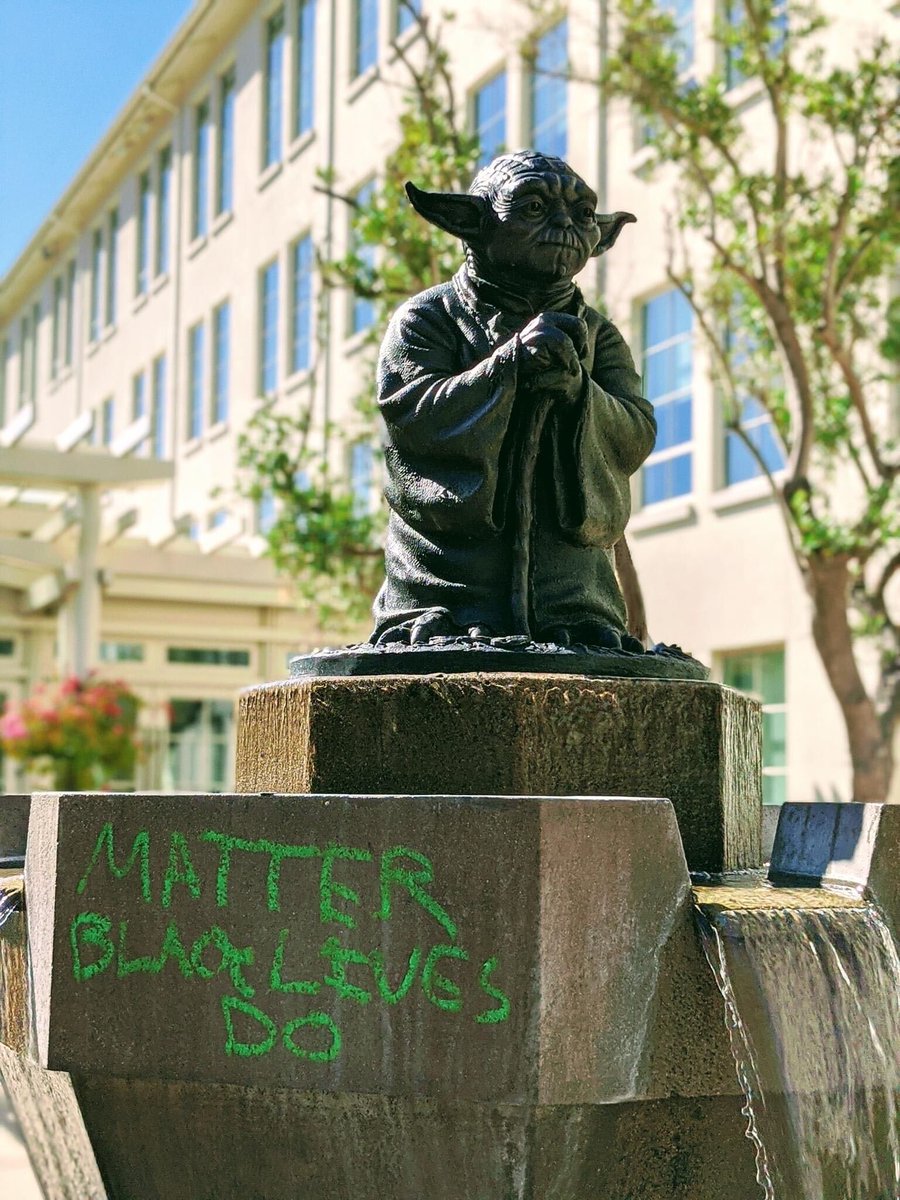 MATTER
BLACK LIVES
DO